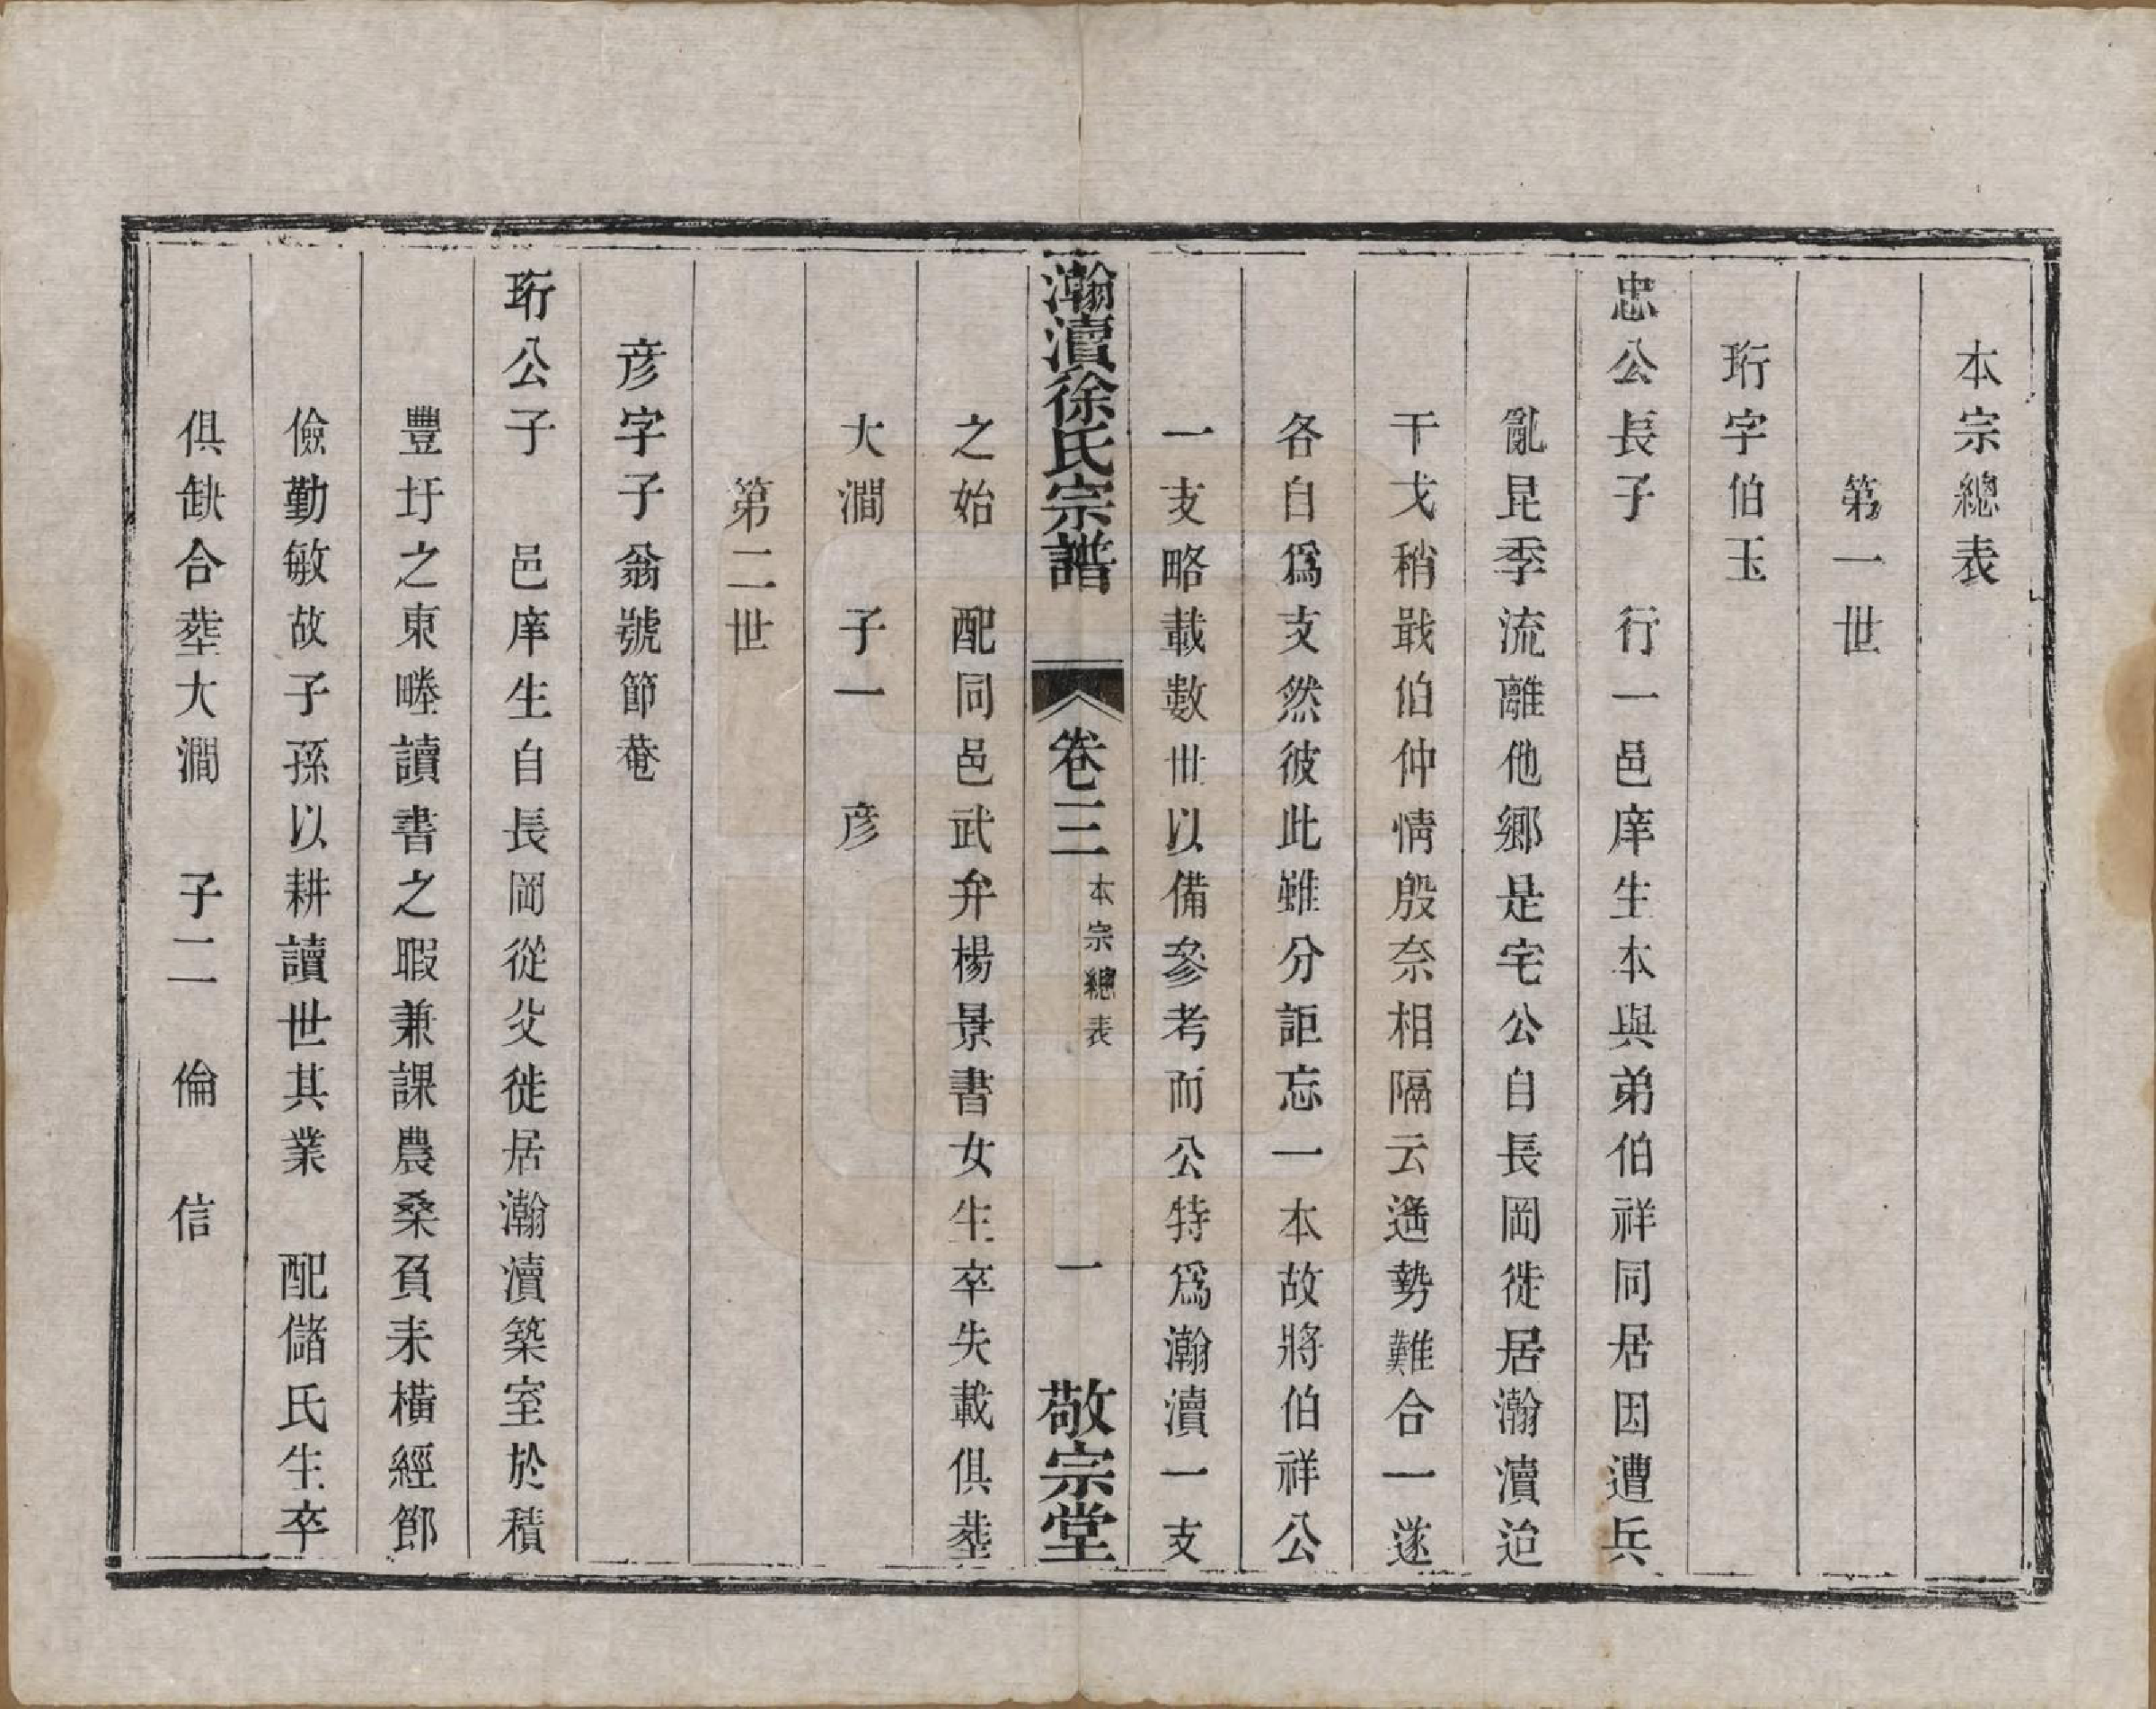 本宗總表
第一世
珩字伯玉
忠公長子　行一邑庠生本與弟伯祥同居因遭兵
亂昆季流離他鄉是宅公自長岡徙居瀚瀆迨
干戈稍戢伯仲情殷奈相隔云遙勢難合一遂
各自爲支然彼此雖分詎忘一本故將伯祥公
一支略載數世以備參考而公特爲瀚瀆一支
瀚瀆徐氏宗譜　卷三　本宗總表　一　敬宗堂
之始　配同邑武弁楊景書女生卒失載俱塟
大澗　子一　彦
第二世
彦字子翁號節菴
珩公子　邑庠生自長岡從父徙居瀚瀆築室於積
豐圩之東畻讀書之暇兼課農桑負耒橫經節
儉勤敏故子孫以耕讀世其業　配儲氏生卒
俱缺合塟大澗　子二　倫　信